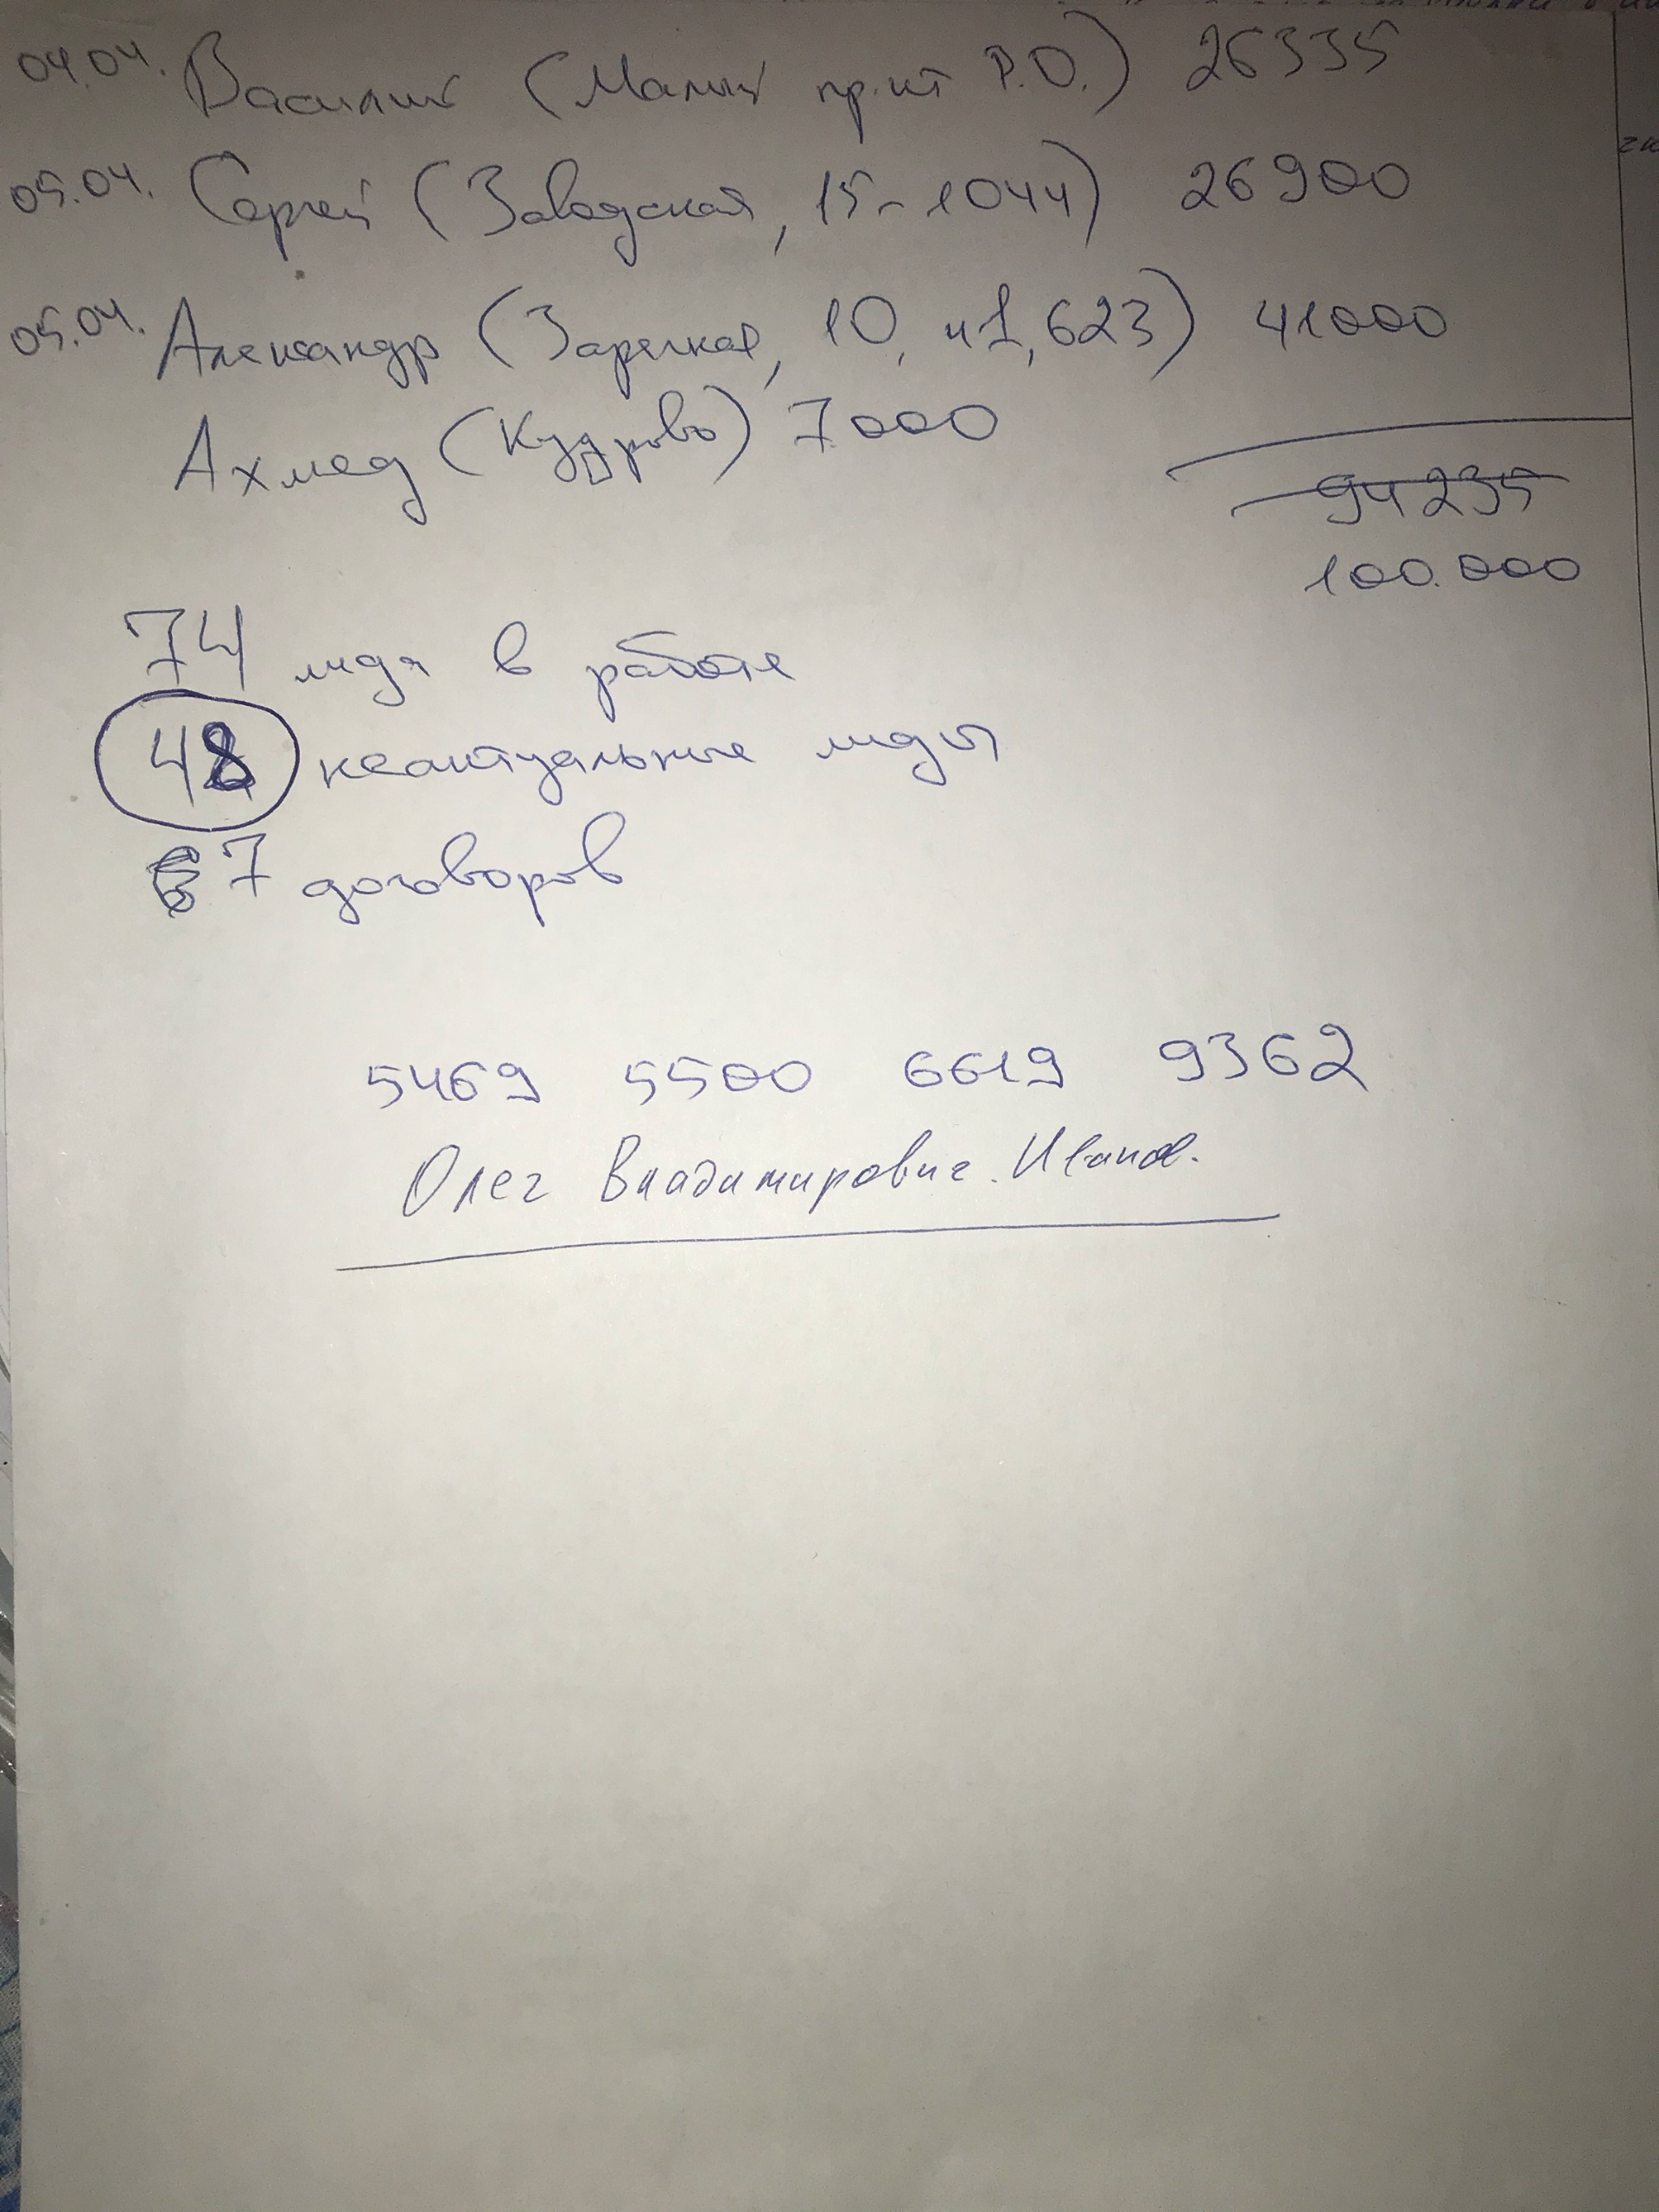 04.04. Василий (Малый пр-кт P.O.) 26335
05.04. Сергей (Заводская, 15-1044) 26900
05.04. Александр (Заречная, 10, к1, 623) 41000
Ахмед (Кудрово) 7000
94235
100.000
74 лида в работе
48 неактуальные лиды
7 договоров
5469 5500 6619 9362
Олег Владимирович. Иванов.